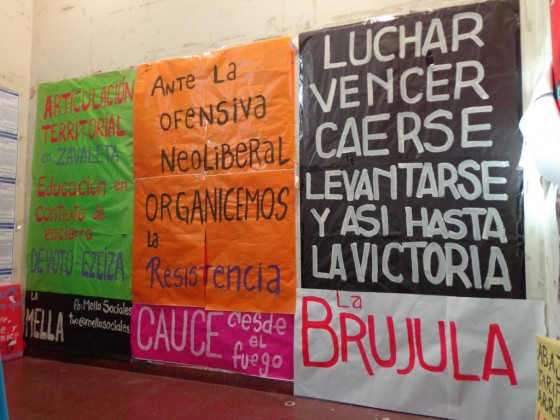 ARTICULACIÓN
TERRITORIAL
en ZAVALETA
Educación en
contexto de
encierro
DEVOTO-EZEIZA
LA
MELLA
fb: Mella Sociales
tw:@mellasociales
ANTE LA
OFENSIVA
NEOLIBERAL
ORGANICEMOS
la
Resistencia
CAUCE desde
el
fuego
LUCHAR
VENCER
CAERSE
LEVANTARSE
Y ASI HASTA
LA VICTORIA
La
BRUJULA